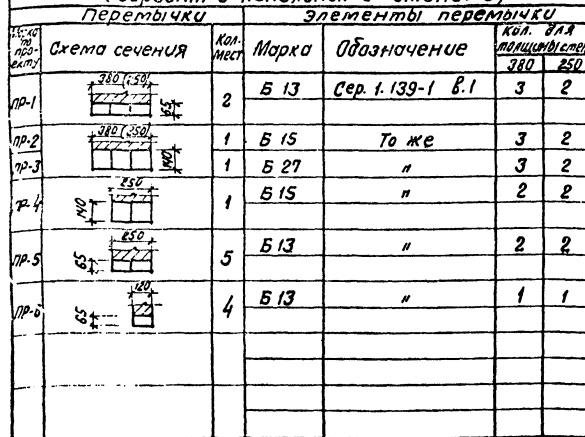 Перемычки Элементы перемычки
по проекту Схема сечения Кол. мест Марка Обозначение Кол. для толщины стен
380 250
ПР-1 380 (250) 65 2 Б 13 Сер. 1.139-1 в.1 3 2
ПР-2 380 (250) 140 1 Б 15 То же 3 2
ПР-3 1 Б 27 " 3 2
ПР-4 250 140 1 Б 15 " 2 2
ПР-5 250 65 5 Б 13 " 2 2
ПР-6 120 65 4 Б 13 " 1 1